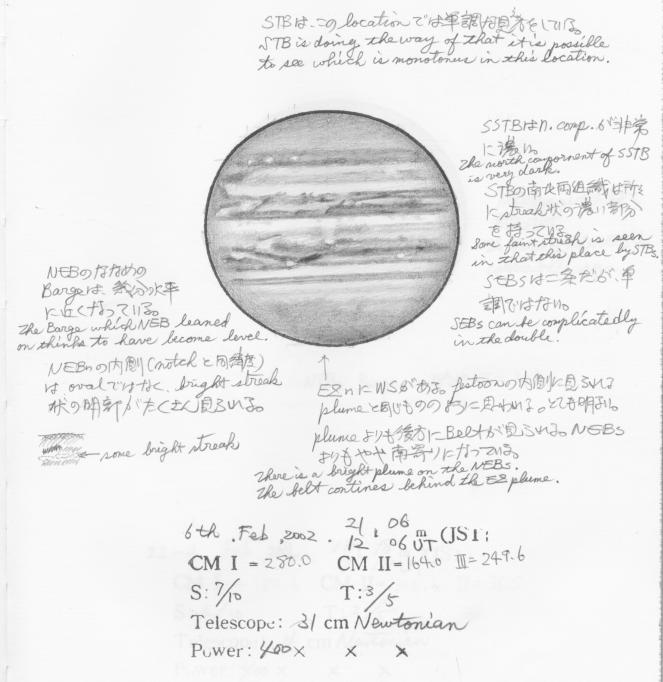 STBは、この location では単調な見え方をしている。
STB is doing the way of that it is possible
to see which is monotonus in this location.
SSTBはn. comp. が非常
に濃い。
The north compornent of SSTB
is very dark.
STBの南北両組織は所々
にstreak状の濃い部分
を持っている。
Some faint streak is seen
in that this place by STBs.
SEBSは二条だが、単
調ではない。
SEBs can be complicatedly
in the double.
NEBのななめの
Bargeは、幾分水平
に近くなっている。
The Barge which NEB leaned
on thinks to have become level.
NEBnの内側(notchと同緯度)
は ovalではなく、bright streak
状の明部がたくさん見られる。
← some bright streak
↑
EZnにWSがある。festoonの内側に見られる
plumeと同じもののように思われる。とても明るい。
plumeよりも後方にBeltが見られる。NEBs
よりもやや南寄りになっている。
There is a bright plume on the NEBs.
The belt contines behind the EZ plume.
6th . Feb , 2002 . 21 : 06 m (JST;
12 06 UT
CM I = 280.0 CM II = 164.0 III = 249.6
S: 7/10 T: 3/5
Telescope: 31 cm Newtonian
Power: 400 × × ×